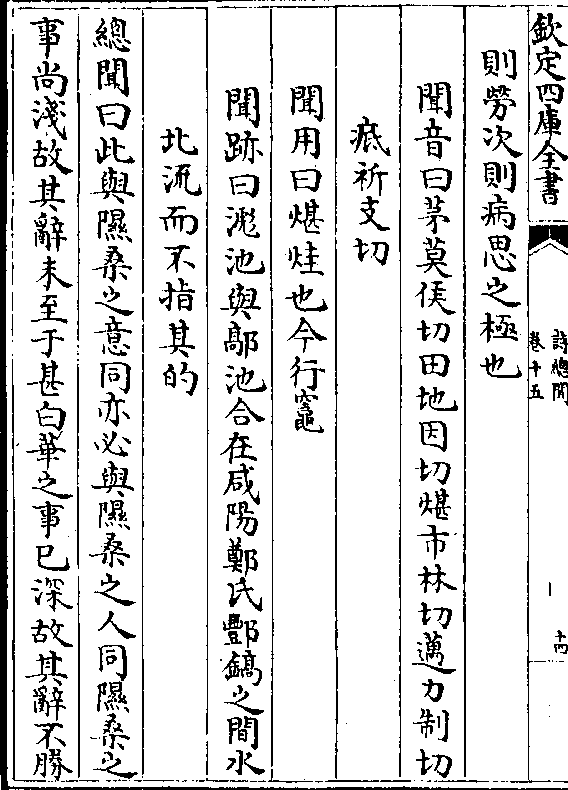 欽定四庫全書
詩總聞
卷十五
十四
則勞次則病思之極也
聞音曰茅莫侯切田地因切煁市林切邁力制切
疷祈支切
聞用曰煁烓也今行竈
聞跡曰滮池與鄗池合在咸陽鄭氏酆鎬之間水
北流而不指其的
總聞曰此與隰桑之意同亦必與隰桑之人同隰桑之
事尚淺故其辭未至于甚白華之事已深故其辭不勝